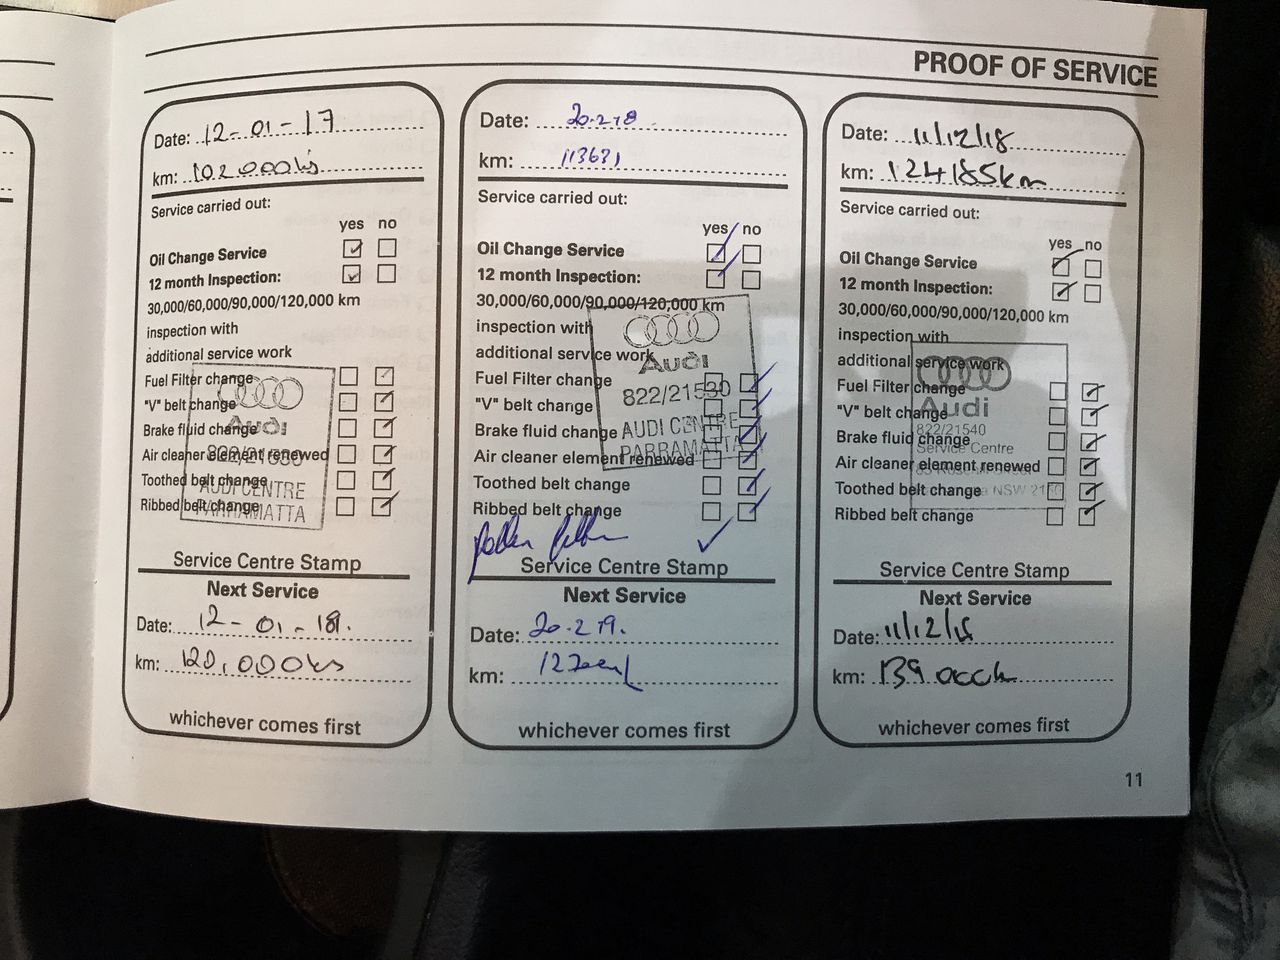 PROOF OF SERVICE
Date: 12-01-17
km: 102000ks
Service carried out:
yes no
Oil Change Service
12 month Inspection:
30,000/60,000/90,000/120,000 km
inspection with
additional service work
Fuel Filter change
"V" belt change
Brake fluid change
Air cleaner element renewed
Toothed belt change
Ribbed belt change
Audi
822/21530
AUDI CENTRE
PARRAMATTA
Service Centre Stamp
Next Service
Date: 12-01-18.
km: 120,000ks
whichever comes first
Date: 20.2.18
km: 113631
Service carried out:
yes no
Oil Change Service
12 month Inspection:
30,000/60,000/90,000/120,000 km
inspection with
additional service work
Fuel Filter change
"V" belt change
Brake fluid change
Air cleaner element renewed
Toothed belt change
Ribbed belt change
Audi
822/21530
AUDI CENTRE
PARRAMATTA
Service Centre Stamp
Next Service
Date: 20.2.19.
km:
whichever comes first
Date: 11/12/18
km: 124185km
Service carried out:
yes no
Oil Change Service
12 month Inspection:
30,000/60,000/90,000/120,000 km
inspection with
additional service work
Fuel Filter change
"V" belt change
Brake fluid change
Air cleaner element renewed
Toothed belt change
Ribbed belt change
Audi
822/21540
Service Centre
NSW
Service Centre Stamp
Next Service
Date: 11/12/18
km: 139
whichever comes first
11